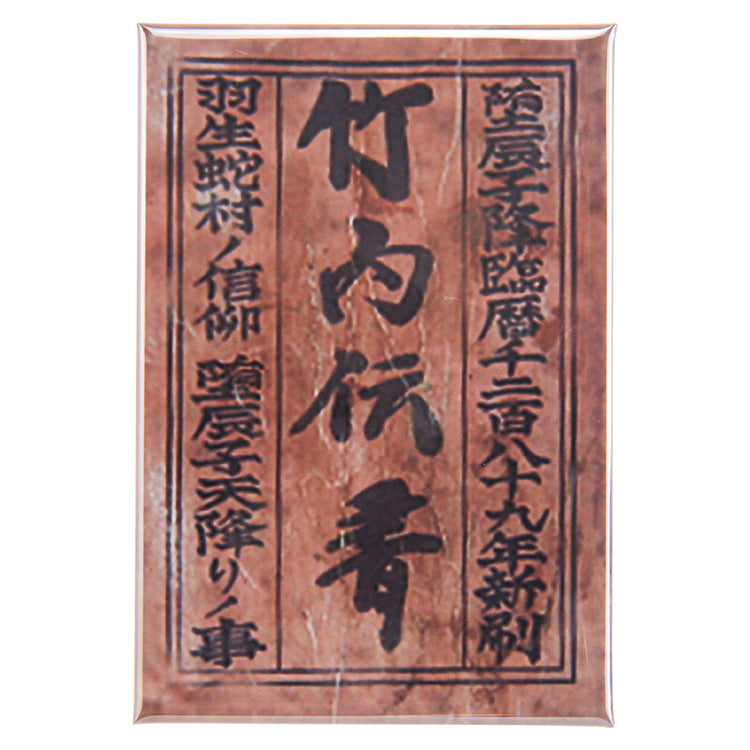 堕辰子降臨暦千二百八十九年新刷
竹内伝書
羽生蛇村ノ信仰 堕辰子天降リノ事